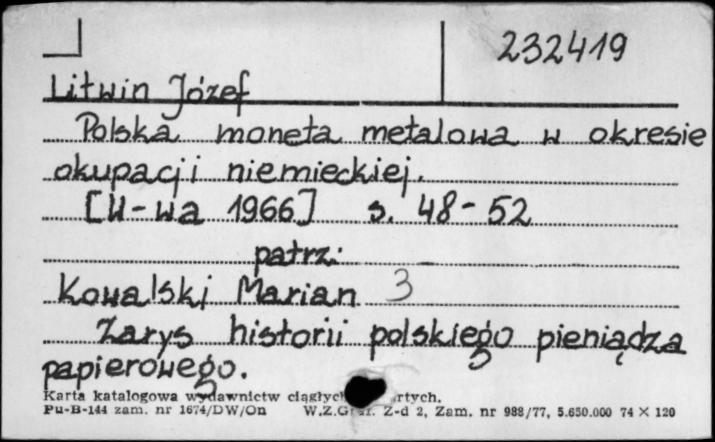 232419
Litwin Józef
Polska moneta metalowa w okresie
okupacji niemieckiej.
[W-wa 1966] s. 48-52
patrz:
Kowalski Marian 3
Zarys historii polskiego pieniądza
papierowego.
Karta katalogowa wydawnictw
Pu-B-144 zam. nr 1674/DW/On W.Z.Graf. Z-d 2, Zam. nr 988/77, 5.650.000 74 × 120